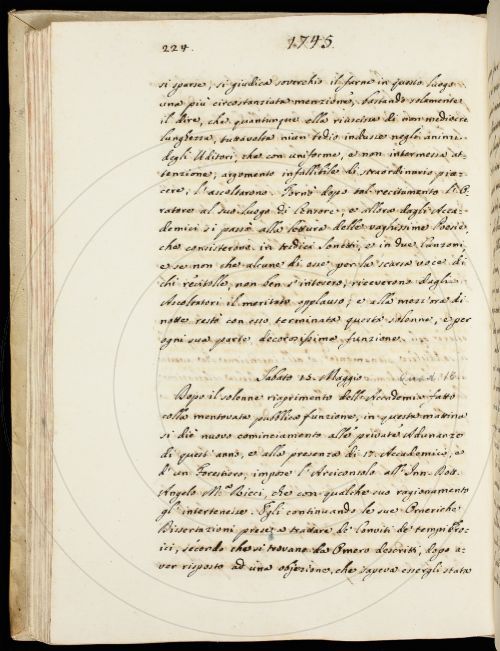 224.
1745.
si sparse, si giudica soverchio il farne in questo luogo
una più circostanziata menzione, bastando solamente
il dire, che quantunque ella riuscisse di non mediocre
lunghezza, tuttavolta niun tedio indusse negli animi
degli Uditori, che con uniforme, e non intermessa at-
tenzione, argomento infallibile di straordinario pia-
cere, l'ascoltarono. Tornò dopo tal recitamento l'O-
ratore al suo luogo di Censore, e allora dagli Acca-
demici si passò alla lettura delle vaghissime Poesie,
che consisterono in tredici Sonetti, e in due Canzoni,
e se non che alcune di esse per la scarsa voce di
chi recitolle, non ben s'intesero, riceverono dagli
Ascoltatori il meritato applauso; e alla mezz'ora di
notte restò con esso terminata questa solenne, e per
ogni sua parte decorosissima funzione.
Sabato 15. Maggio
Dopo il solenne riaprimento dell'Accademia fatto
colla mentovata pubblica funzione, in questa mattina
si diè nuovo cominciamento alle private Adunanze
di quest'anno, e alla presenza di 17. Accademici, e
d'un Forestiero, impose l'Arciconsolo all'Inn. Dott.
Angelo M.ª Ricci, che con qualche suo ragionamento
gl'intertenesse. Egli continuando le sue Omeriche
Dissertazioni prese a trattare de' Conviti de' tempi Ero-
ici, secondo che si trovano da Omero descritti, dopo a-
ver risposto ad una objezione, che sapeva essergli stata